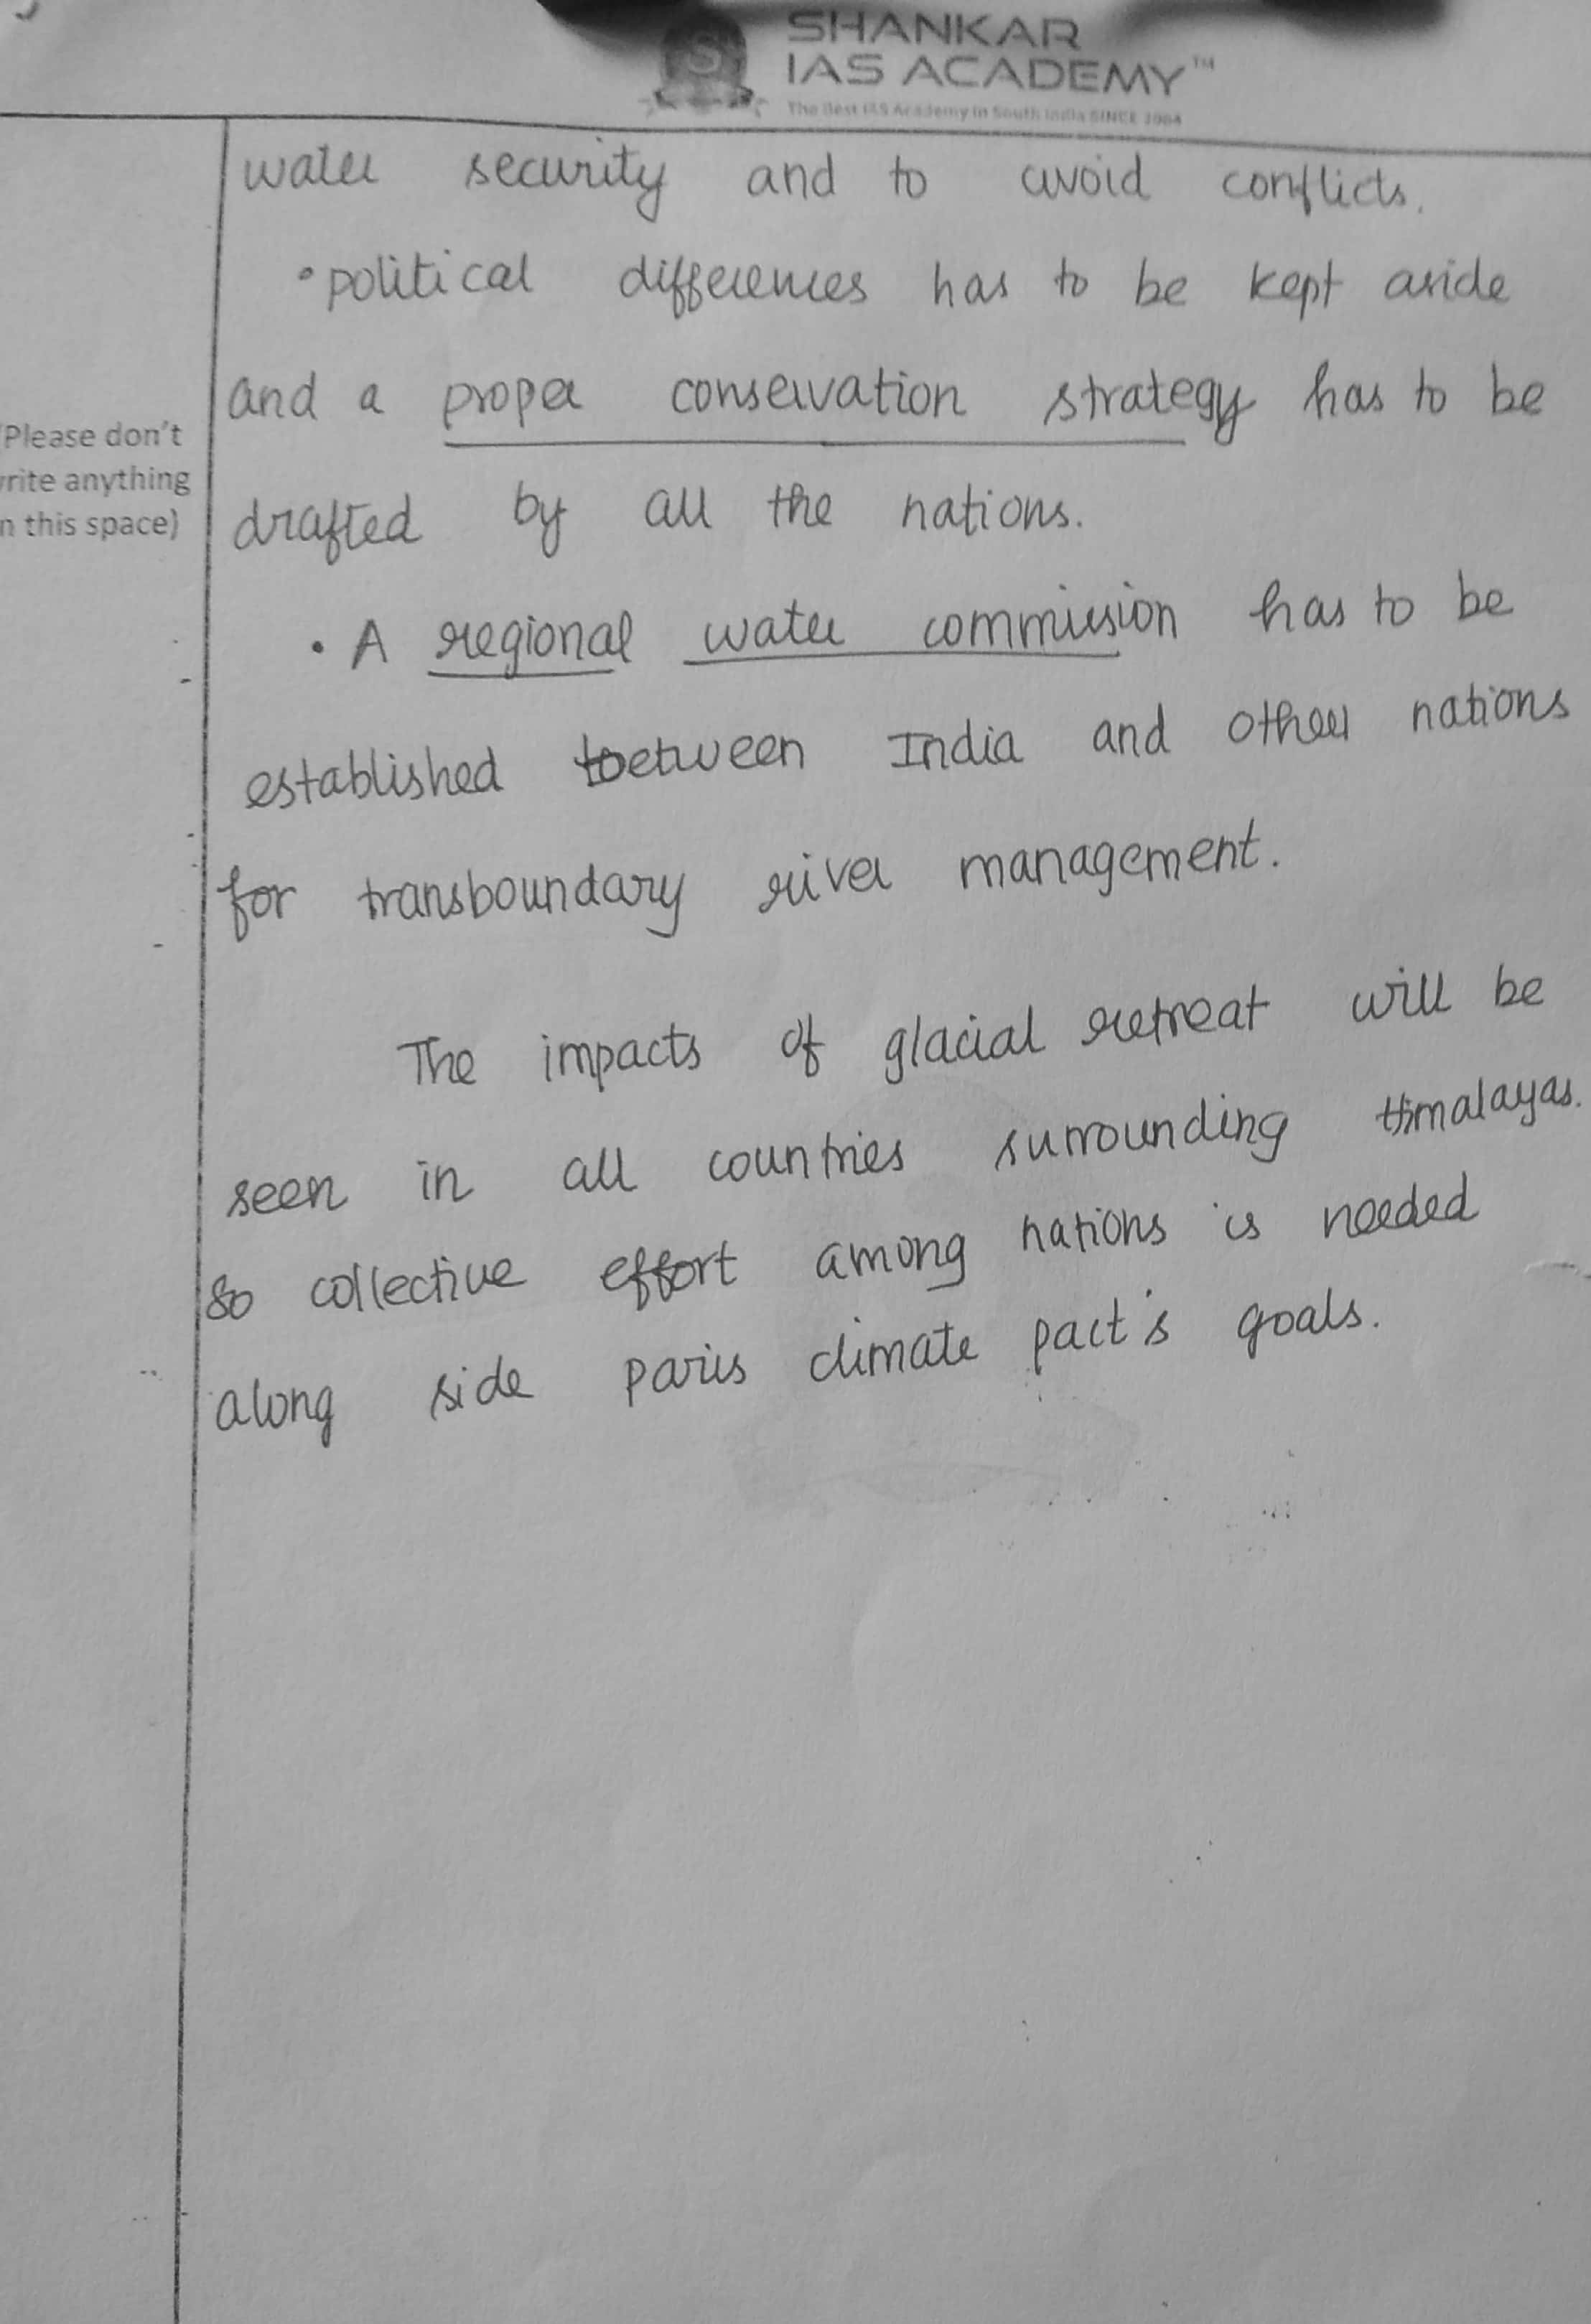 SHANKAR
IAS ACADEMY™
The Best IAS Academy in South India SINCE 2004
water security and to avoid conflicts.
• political differences has to be kept aside
and a proper conservation strategy has to be
(Please don't
write anything
in this space)
drafted by all the nations.
• A regional water commission has to be
established between India and other nations
for transboundary river management.
The impacts of glacial retreat will be
seen in all countries surrounding Himalayas.
so collective effort among nations is needed
along side paris climate pact's goals.